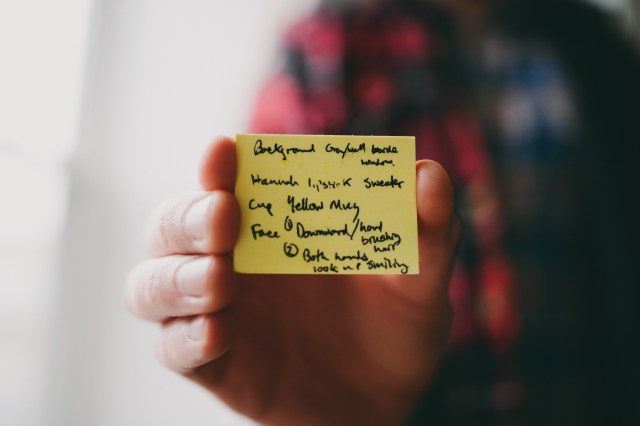 Background Gray/wall beside
window.
Hannah lipstick Sweater
Cup Yellow Mug
Face ① Downward/hand
brushing
hair
② Both hands
look up smiling